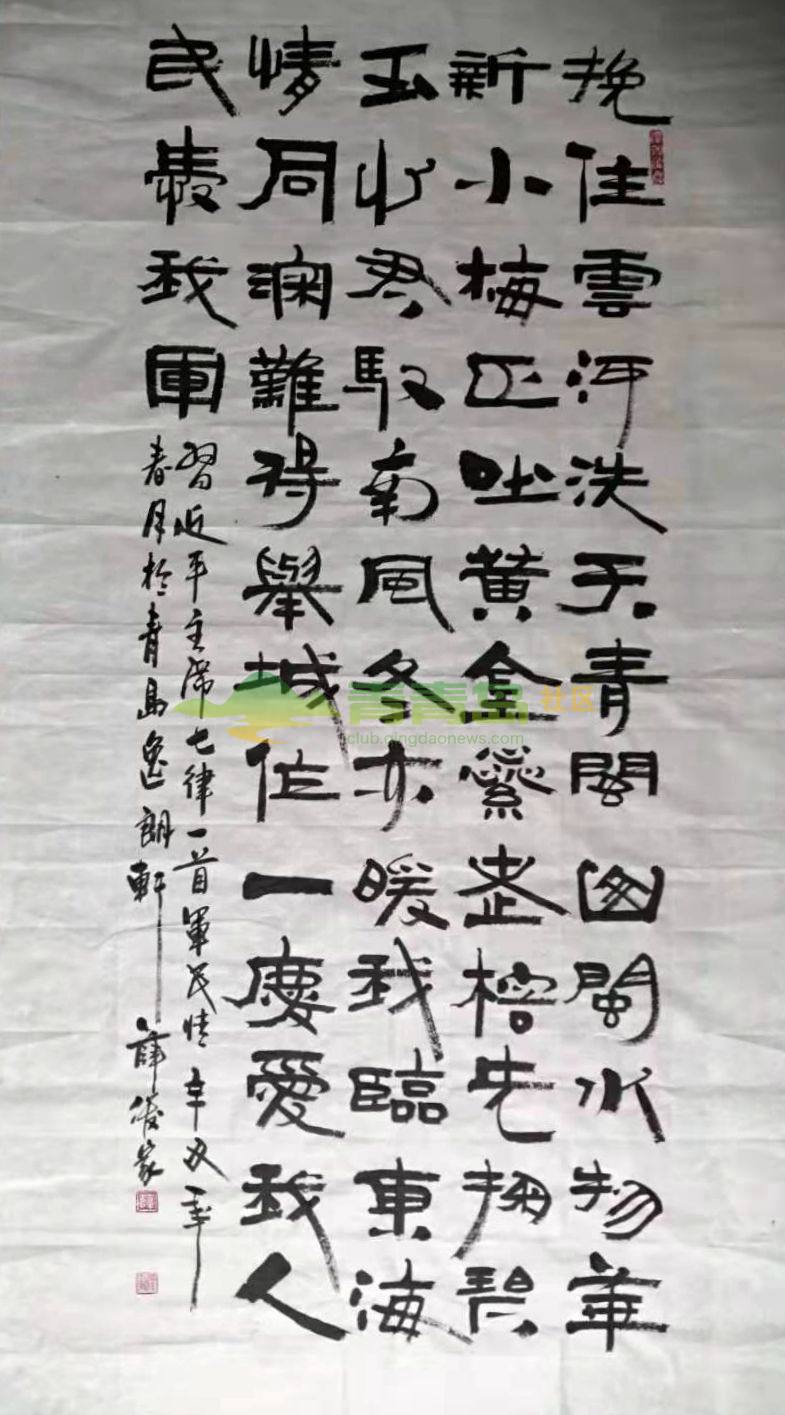 挽住雲河洗天青閩山閩水物華
新小梅正吐黃金蕊老榕先掬碧
玉心君馭南風冬亦暖我臨東海
情同瀾難得舉城作一慶愛我人
民愛我軍
習近平主席七律一首軍民情 辛丑年
春月於青島逸朗軒 薛俊家
青青岛社区
club.qingdaonews.com